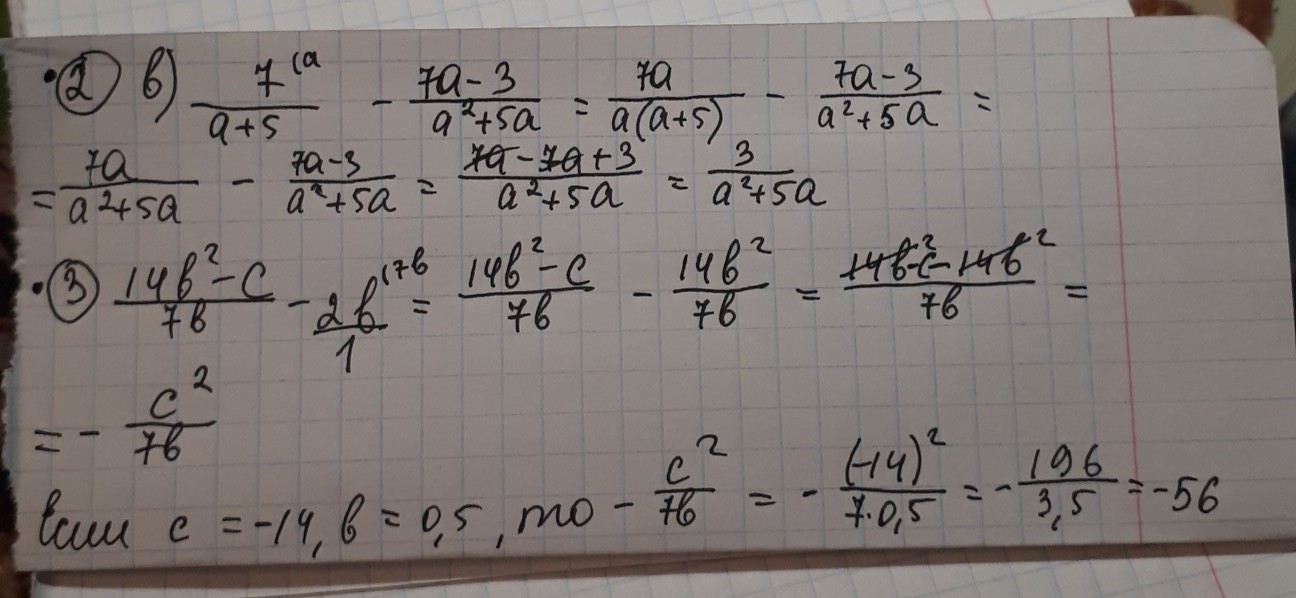 • ② в) 7^(a / (a+5) - (7a-3)/(a²+5a) = 7a/(a(a+5)) - (7a-3)/(a²+5a) =
= 7a/(a²+5a) - (7a-3)/(a²+5a) = (7a-7a+3)/(a²+5a) = 3/(a²+5a)
• ③ (14b²-c)/(7b) - 2b^(7b / 1 = (14b²-c)/(7b) - 14b²/(7b) = (14b²-c-14b²)/(7b) =
= - c²/(7b)
Если c = -14, b = 0,5, то - c²/(7b) = - (-14)²/(7·0,5) = - 196/3,5 = -56